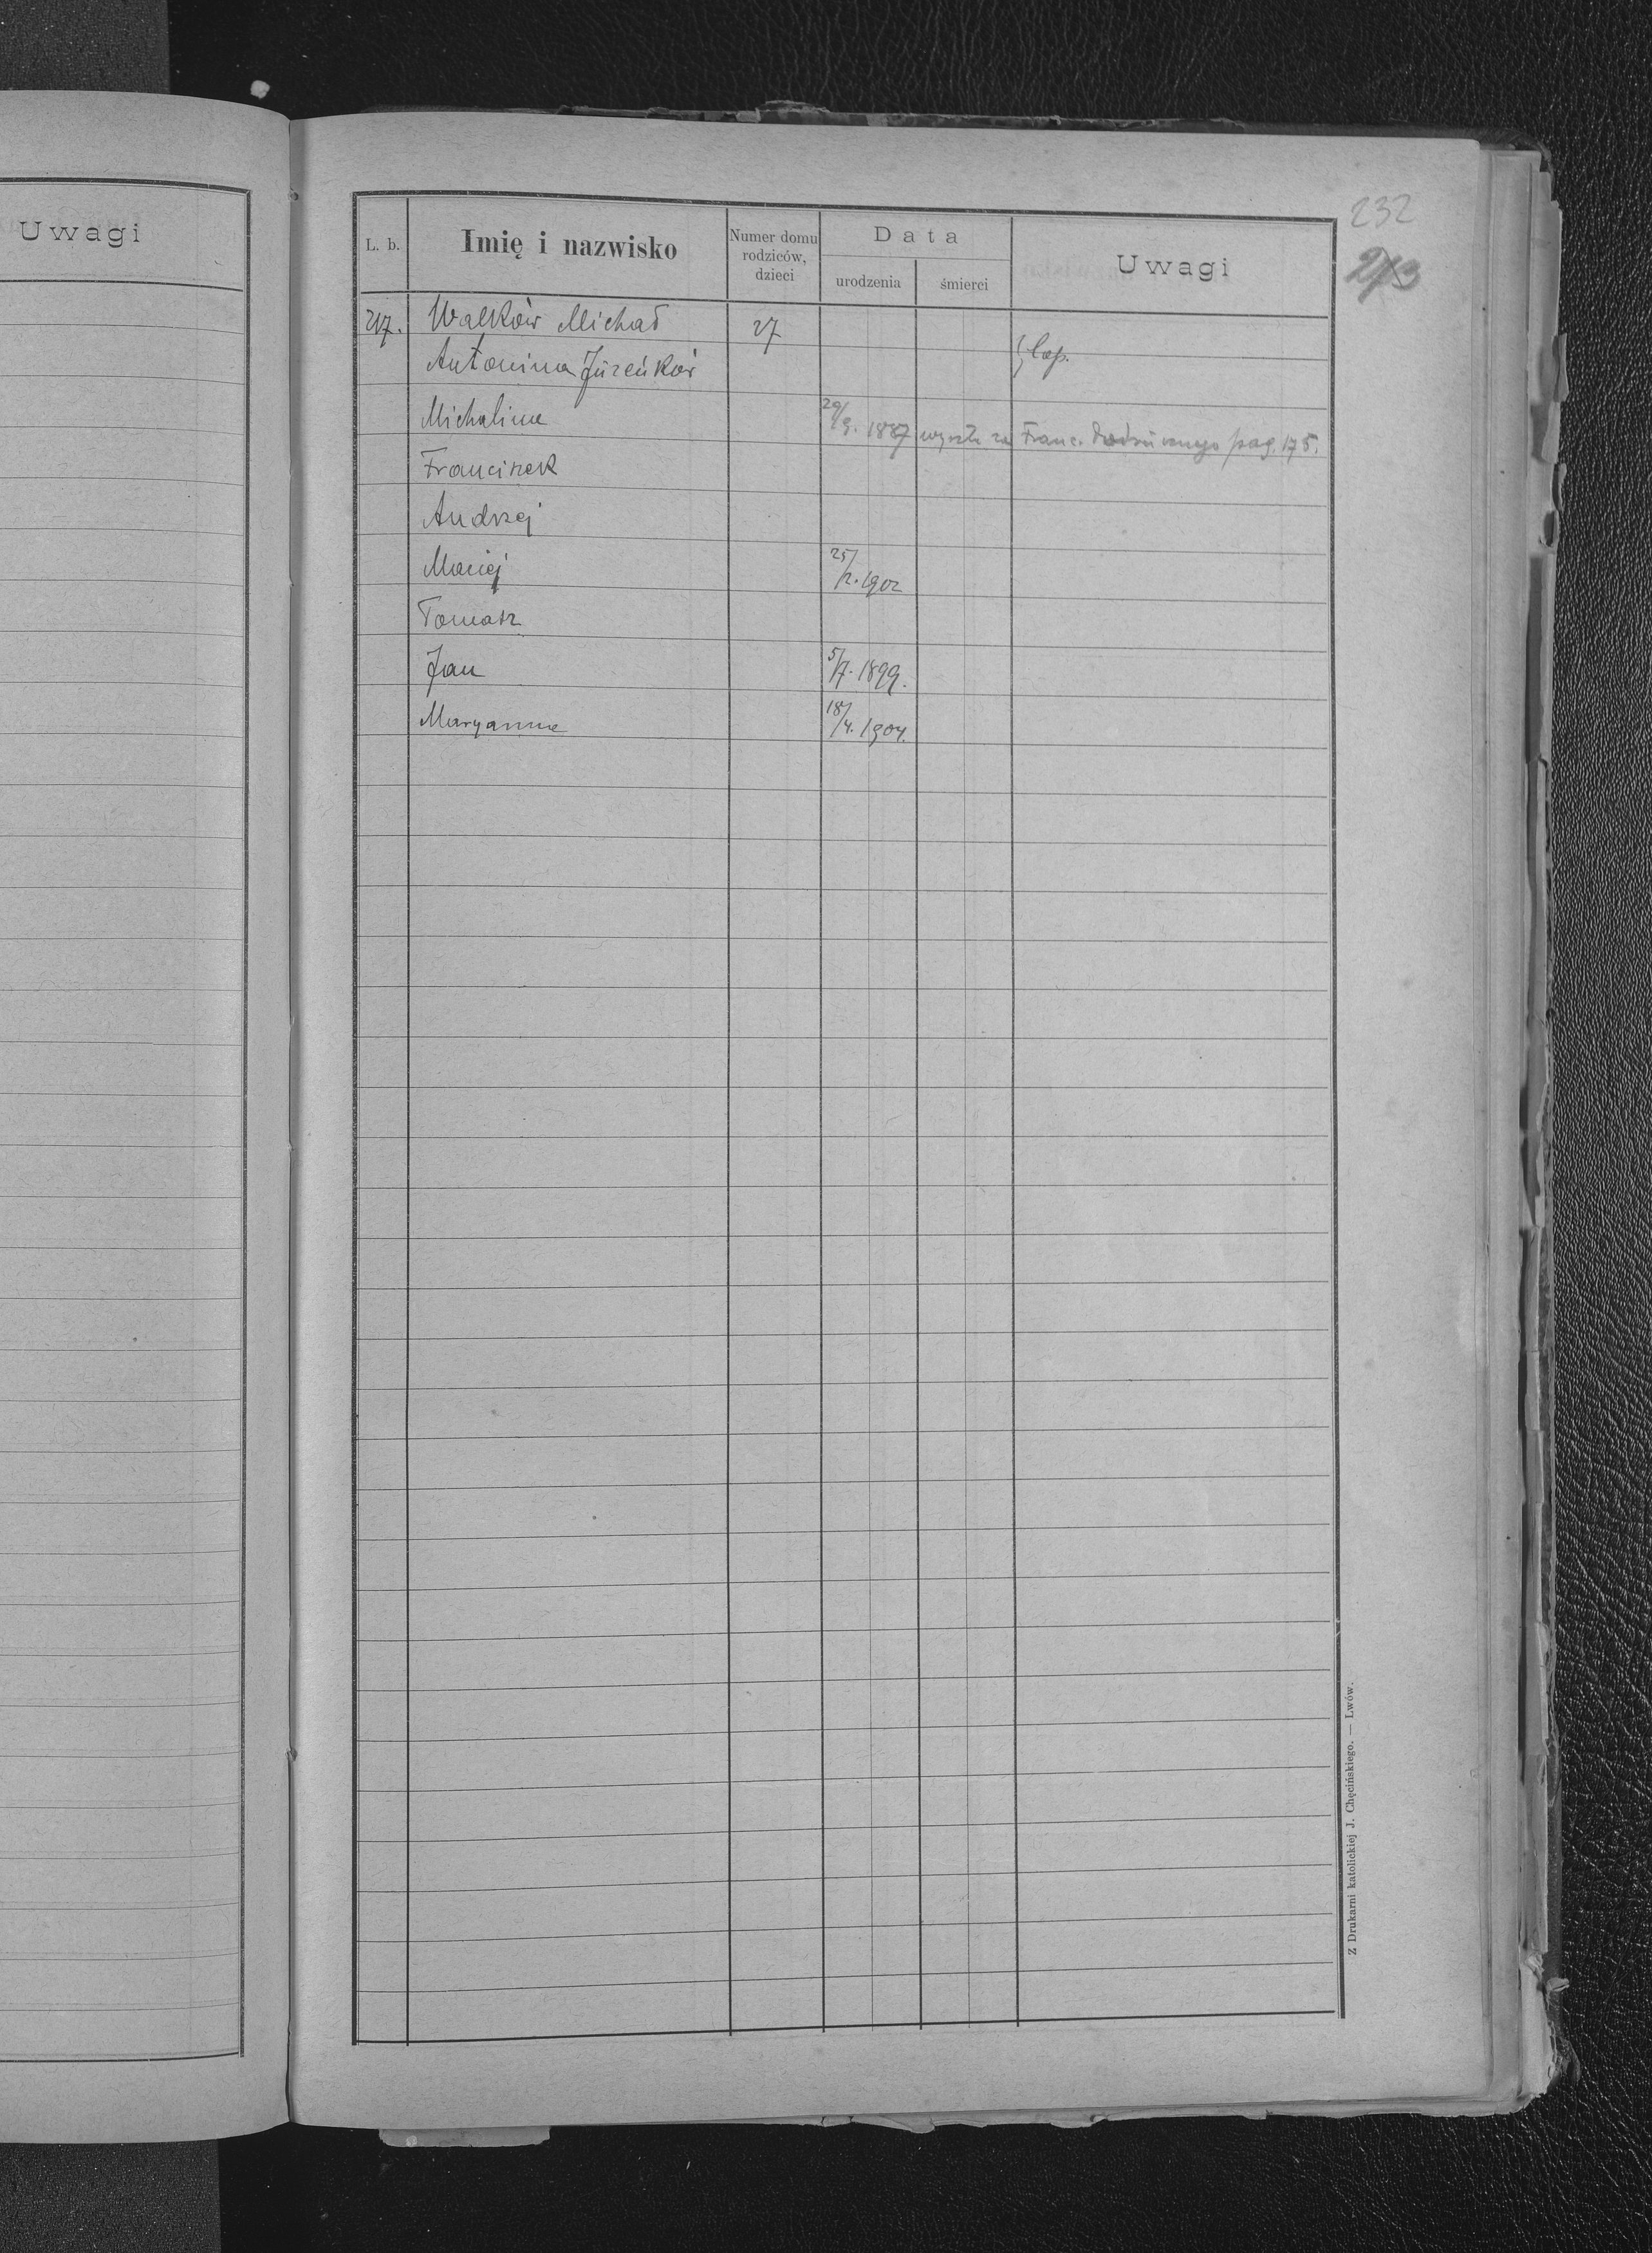 Uwagi
232
213
L. b.
Imię i nazwisko
Numer domu rodziców, dzieci
Data
urodzenia
śmierci
Uwagi
217. Walków Michał 27
Antonina Jüreńków } łac.
Michalina 29/9. 1887 wyszła za Franc. pag. 175.
Franciszek
Andrzej
Maciej 25/2. 1902
Tomasz
Jan 5/7. 1899.
Maryanna 18/4. 1904.
Z Drukarni katolickiej J. Chęcińskiego. — Lwów.